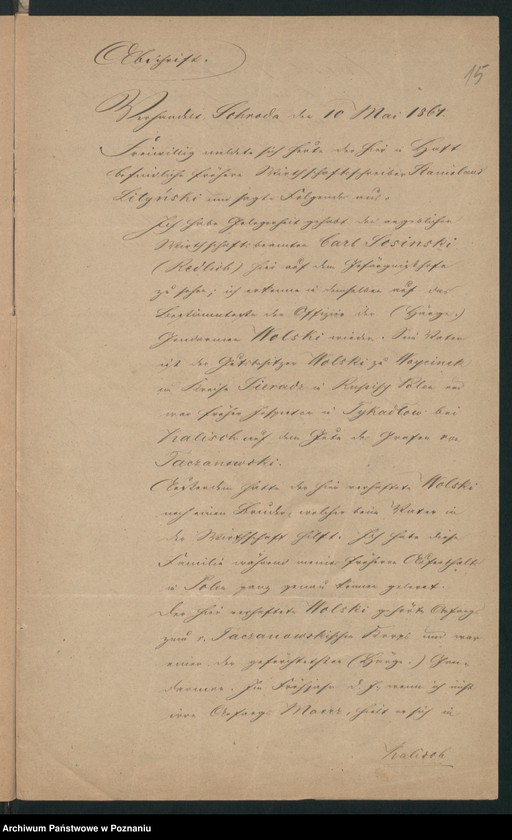 Abschrift.
15
Verhandelt Schroda den 10 Mai 1864.
Freiwillig meldete sich heute der hier in Haft
befindliche frühere Wirthschaftsschreiber
Lityński und sagte Folgendes aus:
Ich habe Gelegenheit gehabt den angeblichen
Wirthschaftsbeamten Carl Sosinski
(Redlich) hier auf dem Gefängnißhofe
zu sehen; ich erkenne in demselben auf das
Bestimmteste den Offizier der (Hänge-)
Gendarmen Wolski wieder. Sein Vater
ist der Gutsbesitzer Wolski zu Woycinek
im Kreise Sieradz in Russisch Polen und
war früher Inspector in Tykadłow bei
Kalisch auf dem Gute des Grafen von
Taczanowski.
Außerdem hatte der hier verhaftete Wolski
noch einen Bruder, welcher beim Vater in
der Wirthschaft hilft. Ich habe diese
Familie während meines früheren Aufenthalts
in Polen ganz genau kennen gelernt.
Der hier verhaftete Wolski gehörte Anfangs
zum v. Taczanowskischen Korps und war
einer der gefürchtetsten (Hänge-) Gen-
darmen. Im Frühjahr d. J., wenn ich nicht
irre Anfangs Maerz, hielt er sich in
Kalisch
Archiwum Państwowe w Poznaniu